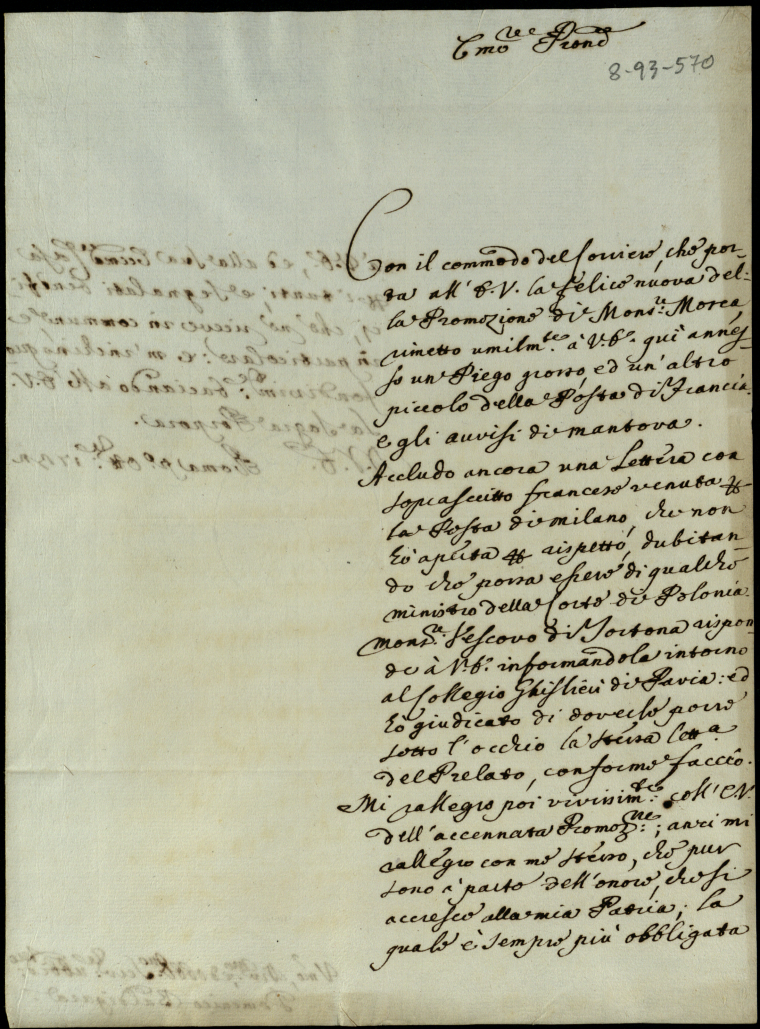 Emo. e Rev. Prone
8-93-570
Con il commodo del Corriere, che por-
ta all' E.V. la felice nuova del-
la Promozione di Monsr. Mosca
rimetto umilmte. à V.E. qui annes-
so un Piego grosso, ed un' altro
piccolo della Posta di Francia,
e gli avvisi di Mantova.
Accludo ancora una Lettera con
soprascritto francese venuta per
la Posta di Milano, che non
hò aperta per rispetto, dubitan-
do che possa essere di qualche
ministro della Corte di Polonia.
Monsr. Vescovo di Tortona rispon-
de à V.E. informandola intorno
al Collegio Ghislieri di Pavia: ed
hò giudicato di doverle porre
sotto l'occhio la stessa letta.
del Prelato, conforme faccio.
Mi rallegro poi vivissimte. coll' E.V.
dell' accennata Promozne.; anzi mi
rallegro con me stesso, che pur
sono à parte dell' onore, che si
accresce alla mia Patria; la
quale è sempre più obbligata